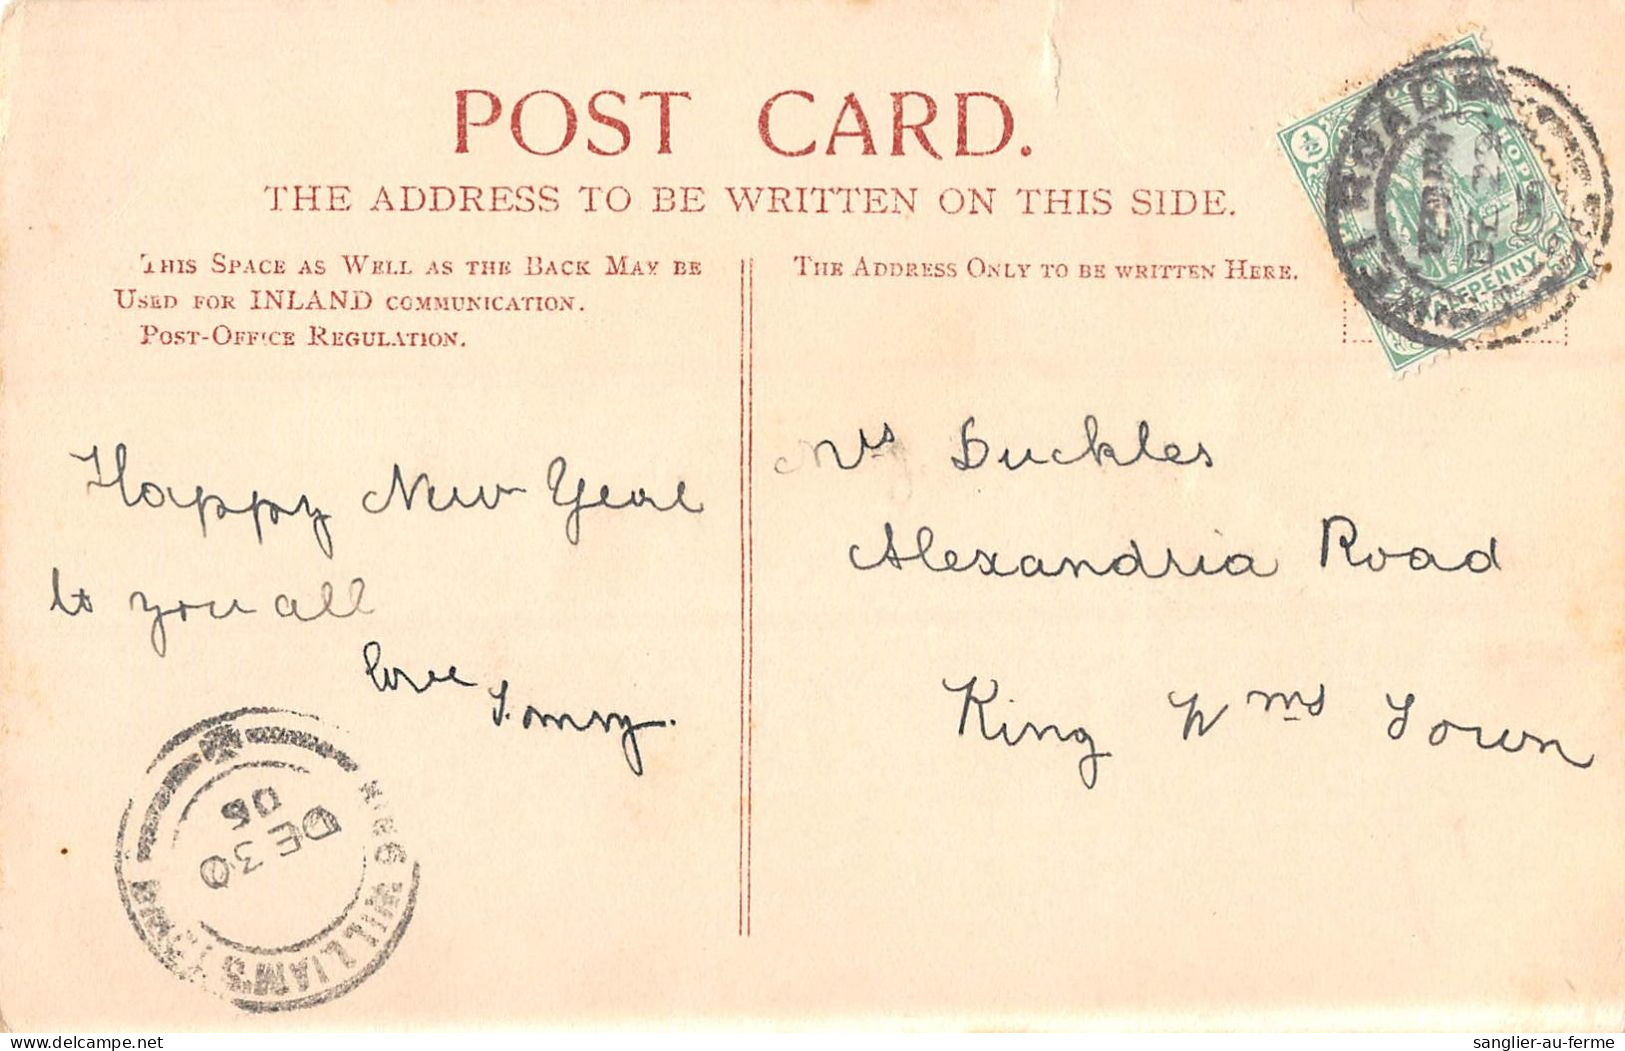 POST CARD.
THE ADDRESS TO BE WRITTEN ON THIS SIDE.
THIS SPACE AS WELL AS THE BACK MAY BE
USED FOR INLAND COMMUNICATION.
POST-OFFICE REGULATION.
THE ADDRESS ONLY TO BE WRITTEN HERE.
½
HALFPENNY
Happy New Year
to you all
love Tommy.
Mrs Duckles
Alexandria Road
King Wms Town
KING WILLIAM'S TOWN
DE 30
05
sanglier-au-ferme
www.delcampe.net